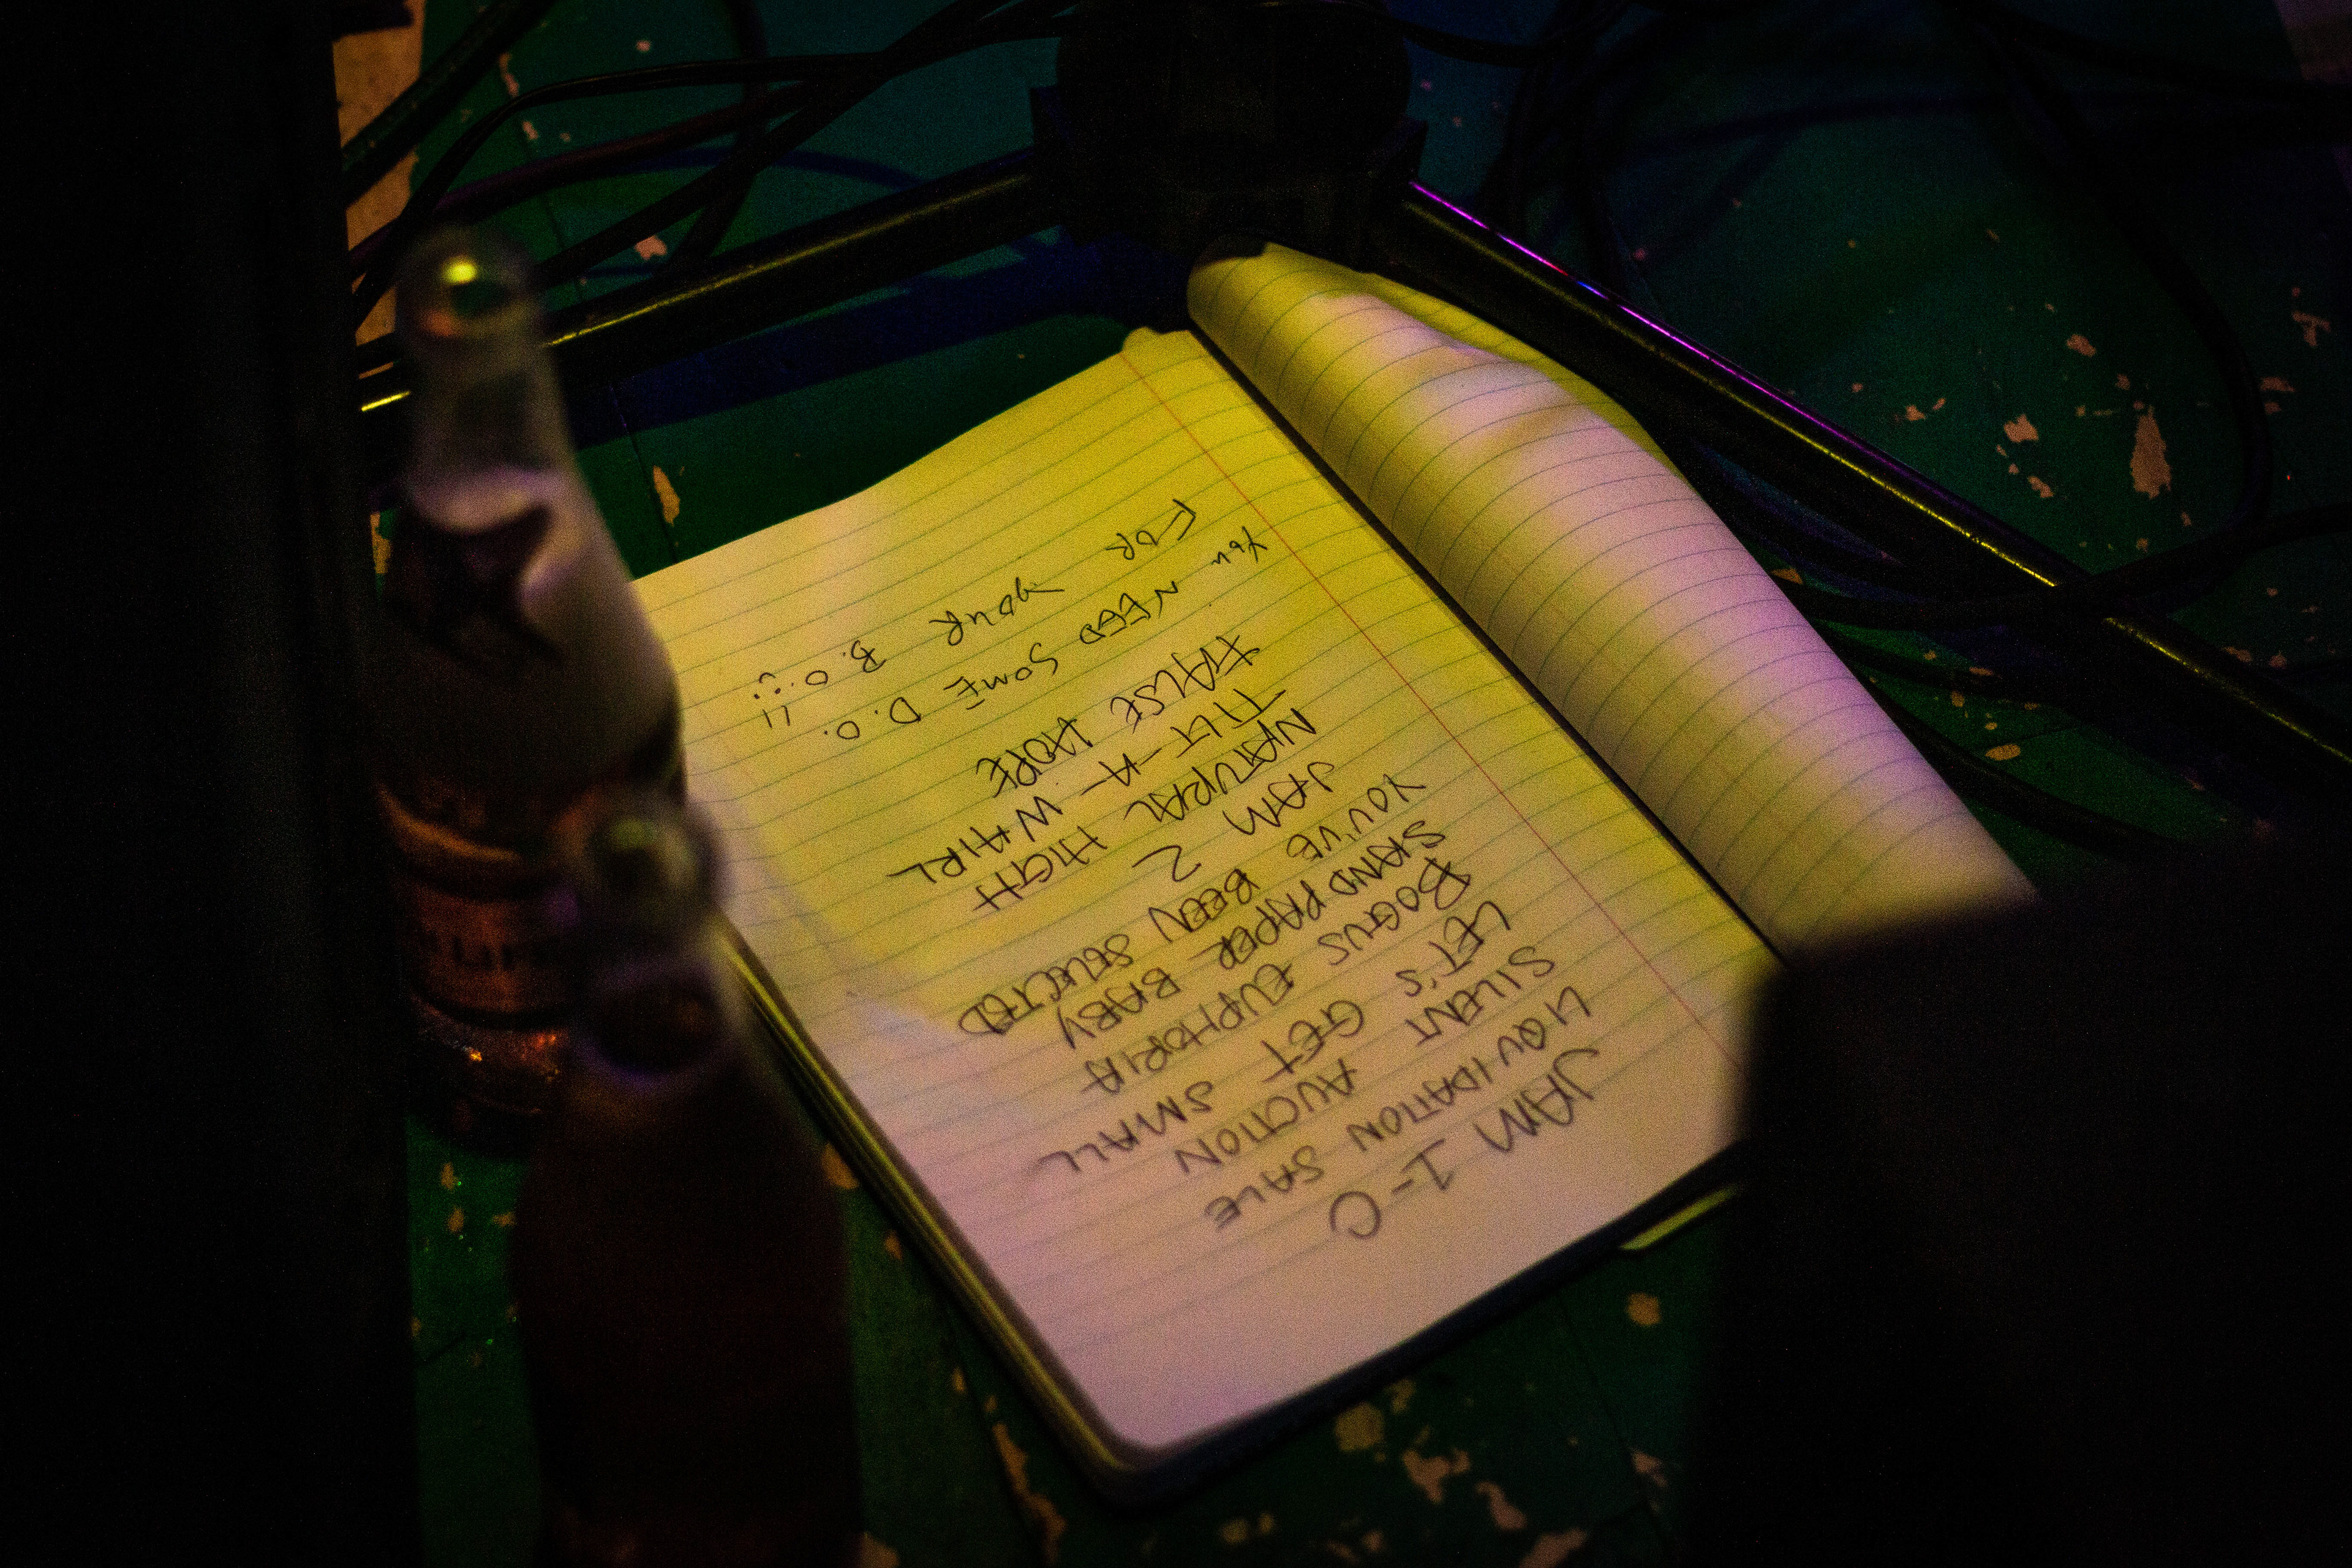 JAM 1-C
LIQUIDATION SALE
SILENT AUCTION
LET'S GET SMALL
BOGUS EUPHORIA
SANDPAPER BABY
YOU'VE BEEN SELECTED
JAM 2
NATURAL HIGH
TILT-A-WHIRL
FALSE HOPE
You NEED SOME D.O.
FOR YOUR B.O. !!